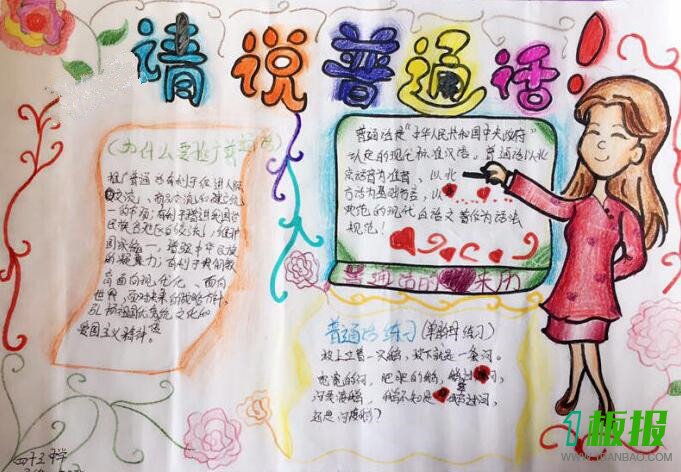 请说普通话!
(为什么要推广普通话)
推广普通话有利于促进人际
交流、商品交流和建立统
一的市场;有利于增进我国各
民族各地区的交流,维护
国家统一,增强中华民族
的凝聚力;有利于我们教
育面向现代化、面向
世界,面对未来的战略方针,
弘扬祖国优秀传统文化的
爱国主义精神。
普通话是“中华人民共和国中央政府”
认定的现代标准汉语。普通话以北
京语音为准音、以北
方话为基础方言,以
典范的现代白话文著作为语法
规范!
普通话的来历
普通话练习(单韵母练习)
坡上立着一只鹅,坡下就是一条河。
宽宽的河,肥肥的鹅,鹅过河,
河要渡鹅,鹅不知是鹅过河,
还是河渡鹅?
四十三中学
1板报
WWW.YIBANBAO.COM